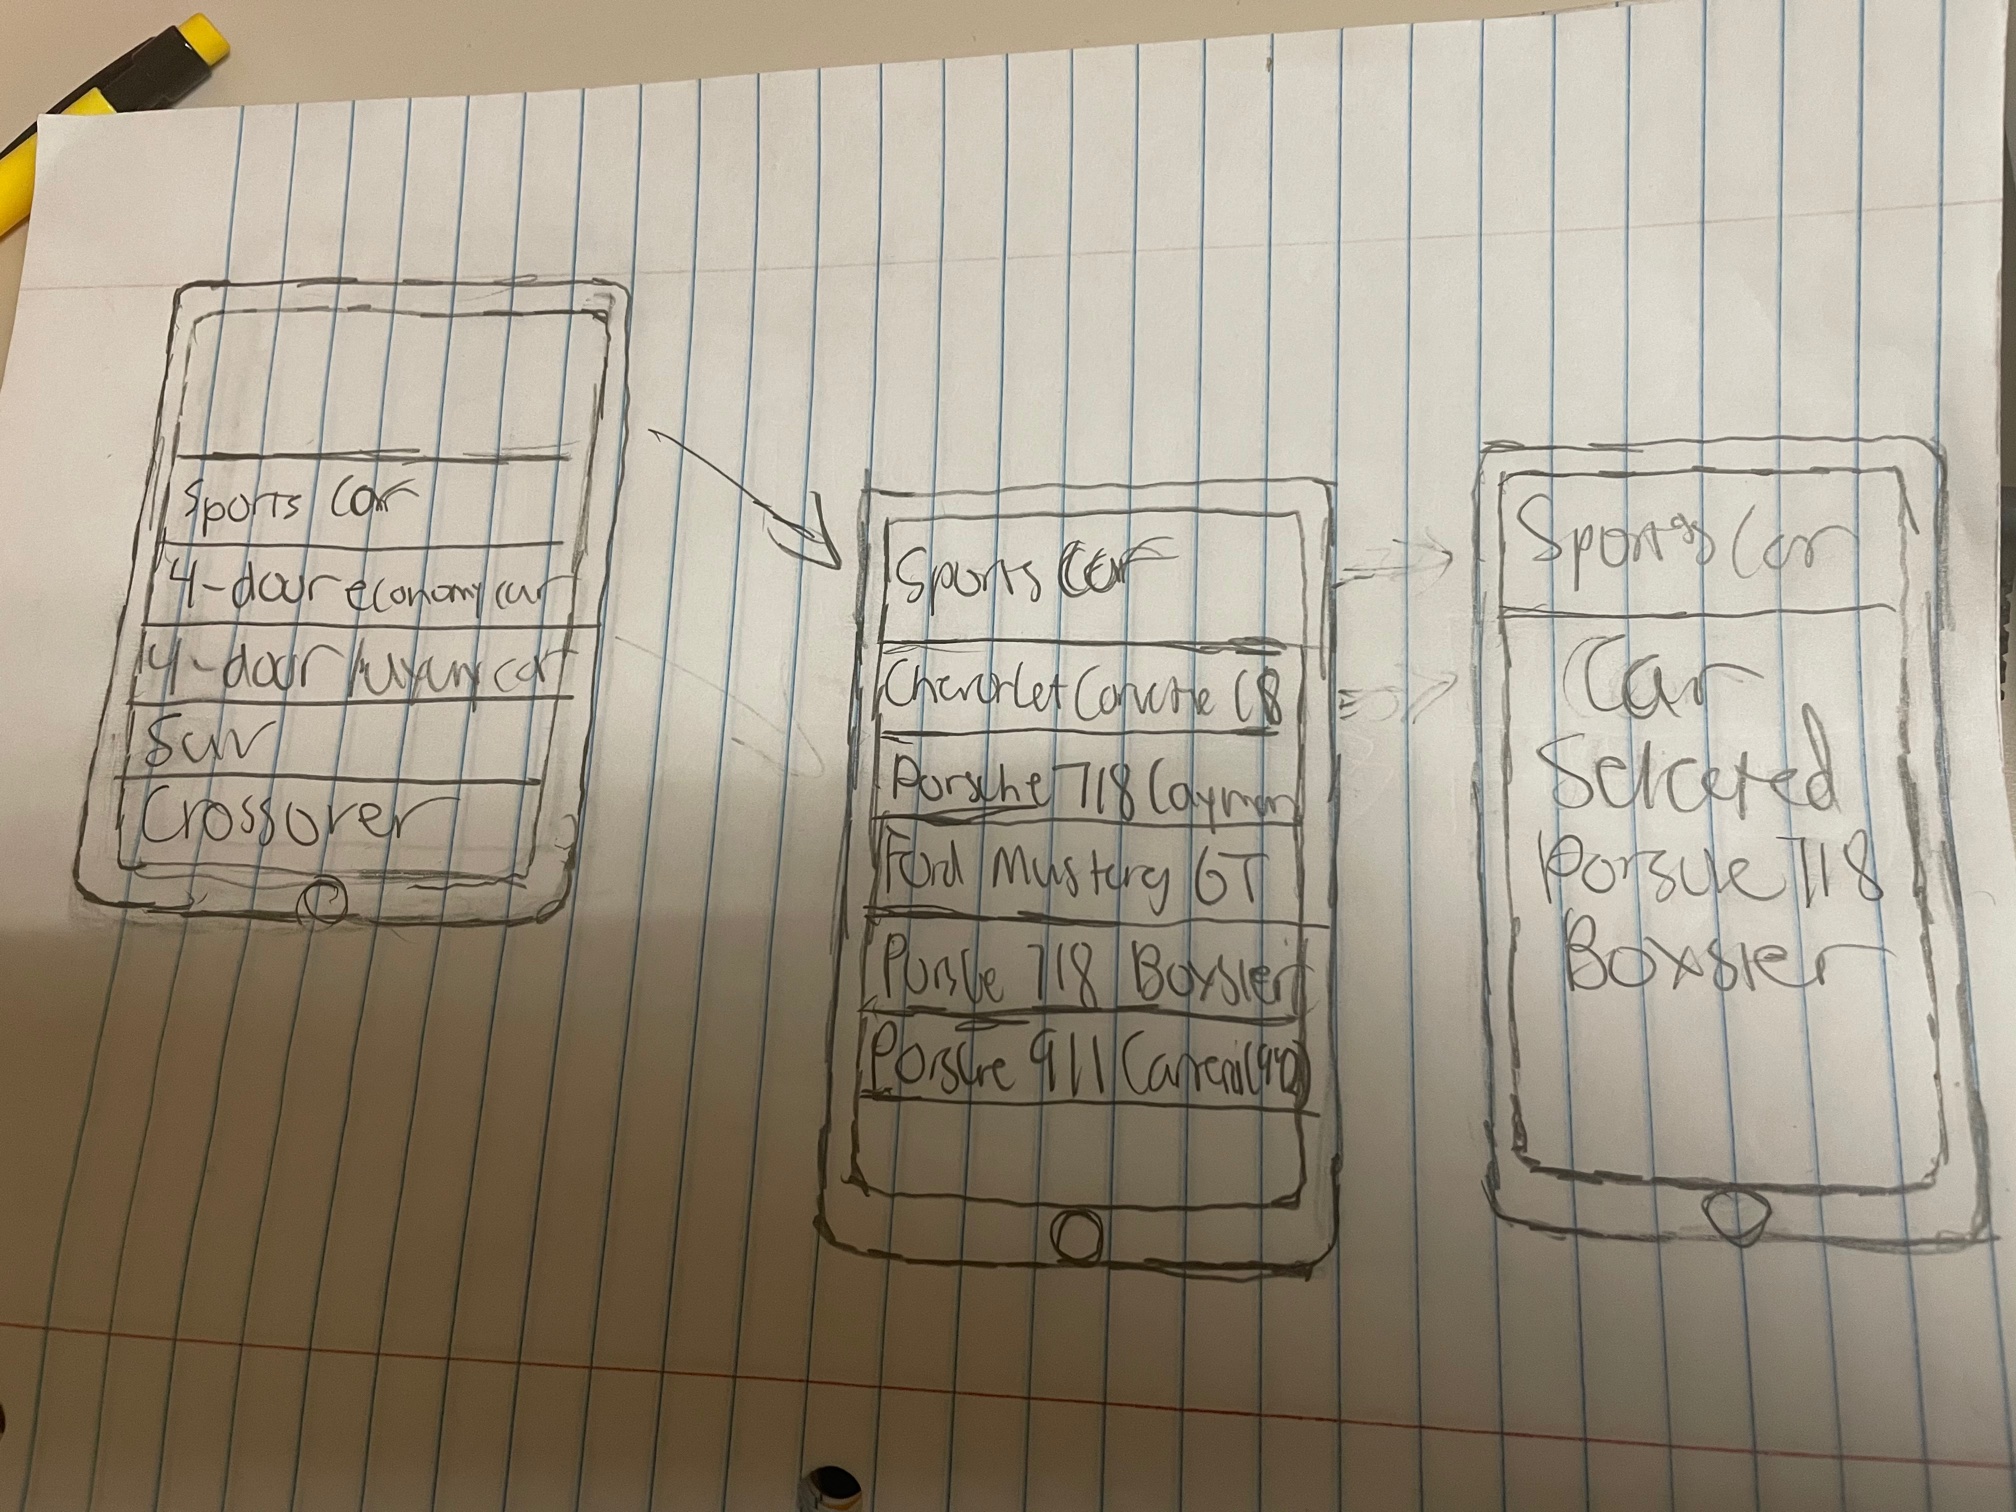 Sports Car
4-door economy car
4-door luxury car
Suv
Crossover
Sports Car
Chevorlet Corvette C8
Porsche 718 Cayman
Ford Mustang GT
Porsche 718 Boxster
Porsche 911 Carrera
Sports Car
Car
Selceted
Porsche 718
Boxster